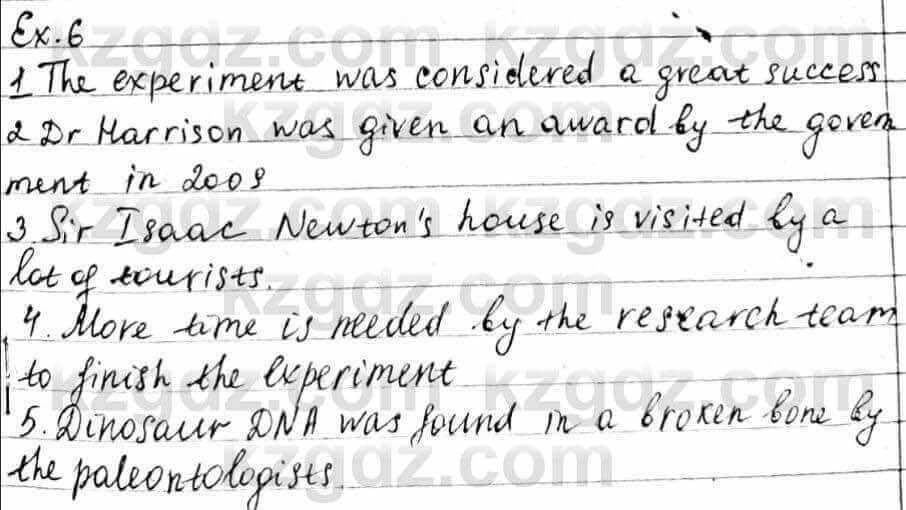 Ex.6
1 The experiment was considered a great success
2 Dr Harrison was given an award by the govern
ment in 2009
3. Sir Isaac Newton's house is visited by a
lot of tourists.
4. More time is needed by the research team
to finish the experiment
5. Dinosaur DNA was found in a broken bone by
the paleontologists.
kzgdz.com